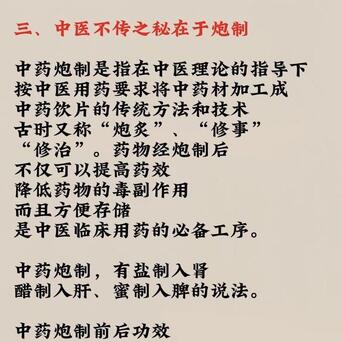 三、中医不传之秘在于炮制
中药炮制是指在中医理论的指导下
按中医用药要求将中药材加工成
中药饮片的传统方法和技术
古时又称“炮炙”、“修事”
“修治”。药物经炮制后
不仅可以提高药效
降低药物的毒副作用
而且方便存储
是中医临床用药的必备工序。
中药炮制，有盐制入肾
醋制入肝、蜜制入脾的说法。
中药炮制前后功效